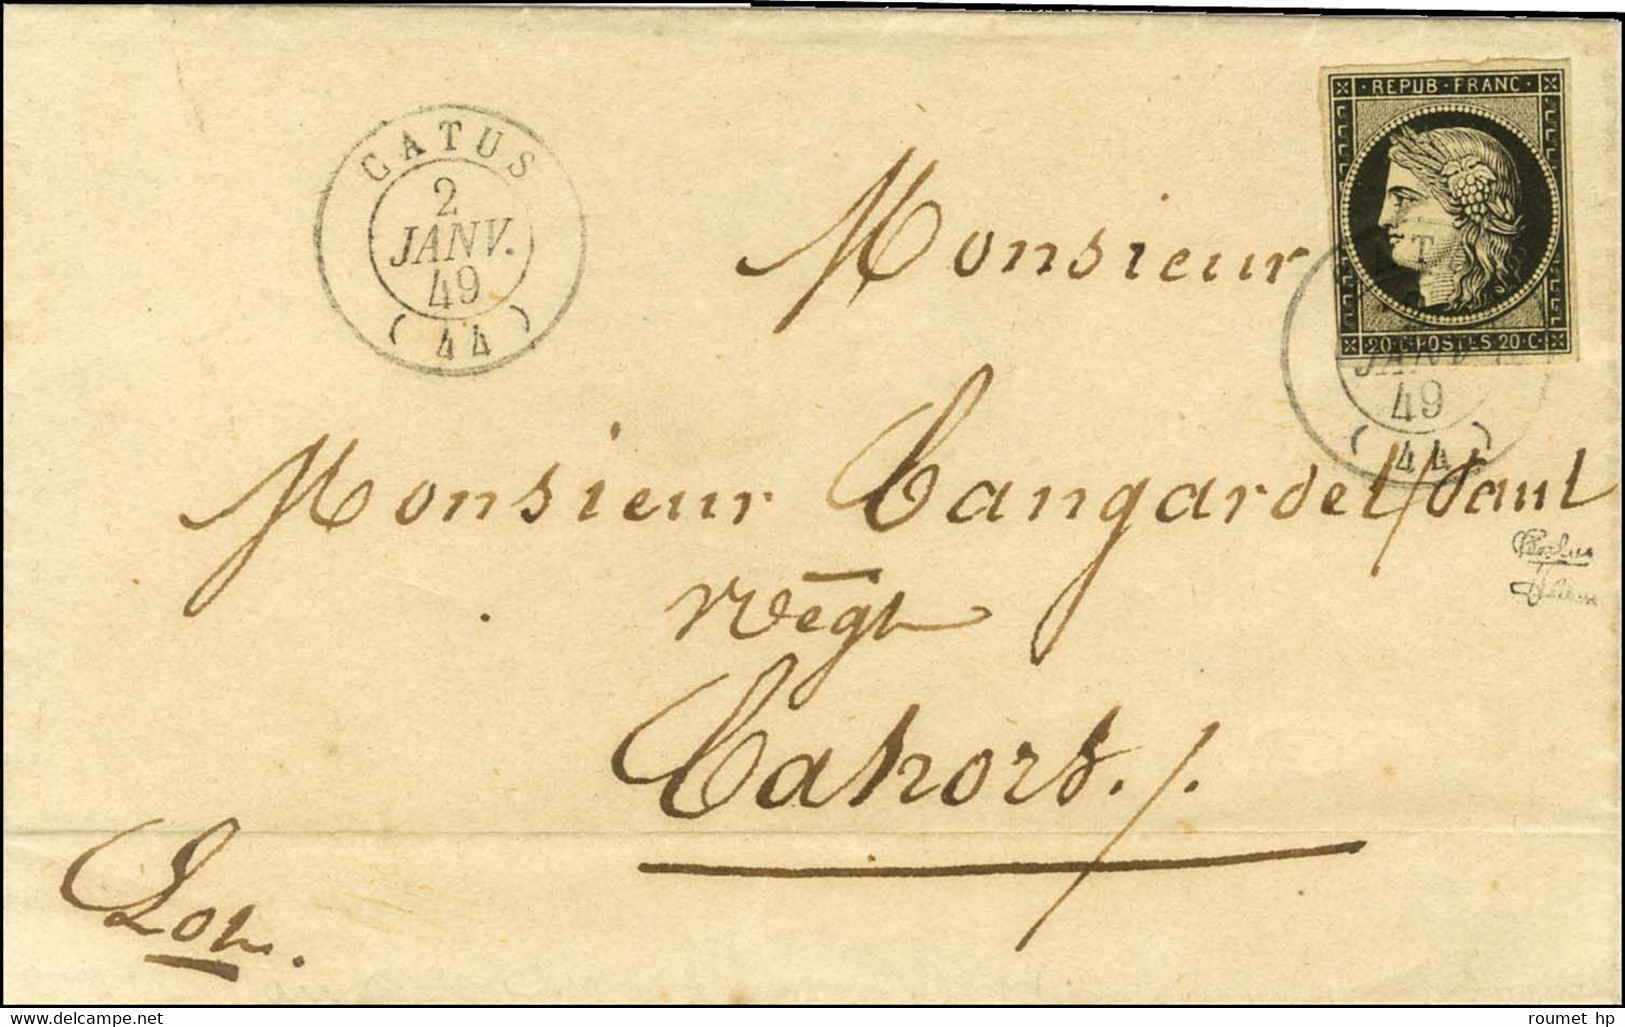 REPUB·FRANC·
CATUS
2
JANV.
49
(44)
Monsieur
20·C·POSTES 20·C·
JANV.
49
(44)
Monsieur Cangardel/Paul
Négt
Cahors./.
Lot.
delcampe.net
roumet hp